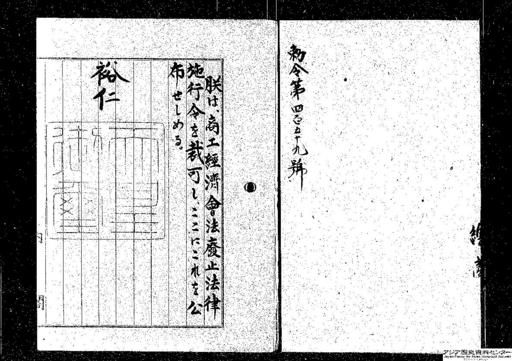 勅令第四百五十九號
朕は、商工經濟會法廢止法律
施行令を裁可し、ここにこれを公
布せしめる。
裕仁
内閣
アジア歴史資料センター